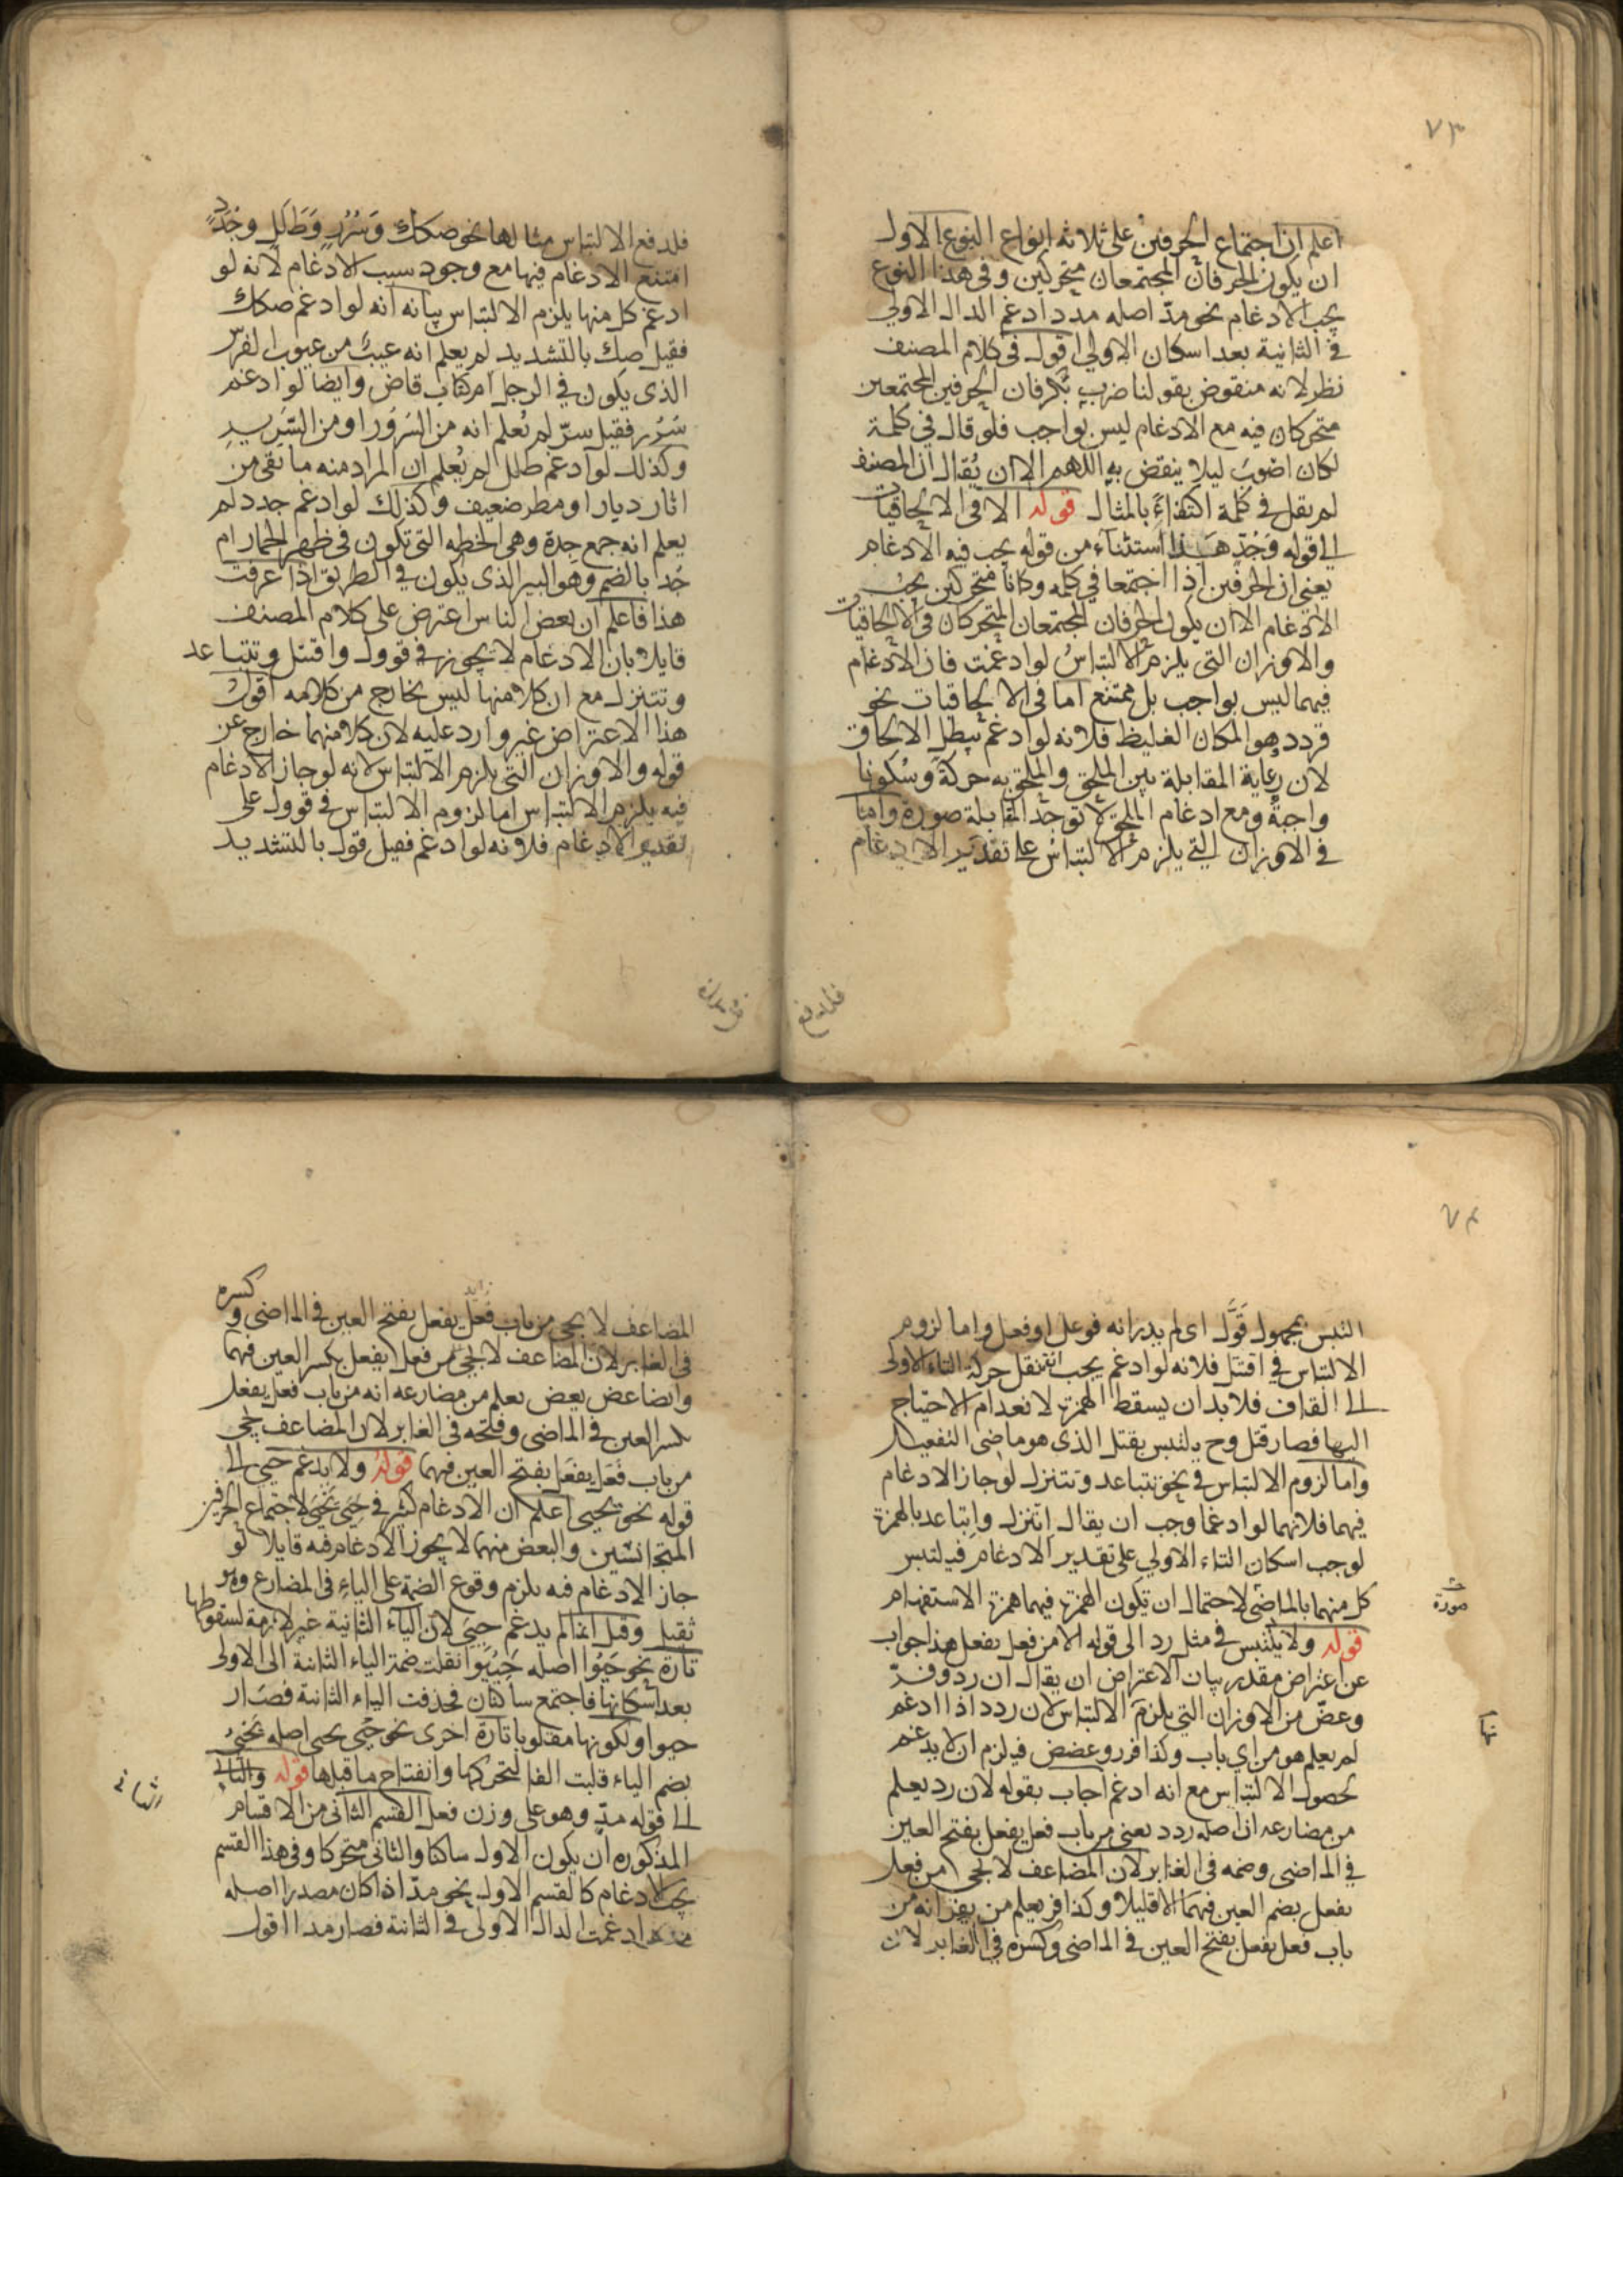 ٧٣
اعلم ان اجتماع الحرفين على ثلاثة انواع النوع الاول
ان يكون الحرفان المجتمعان متحركين وفى هذا النوع
يجب الادغام نحو مدّ اصله مدد ادغم الدال الاولي
في الثانية بعد اسكان الاولي اقول فى كلام المصنف
نظر لانه منقوض بقولنا ضرب بكر فان الحرفين المجتمعين
متحركان فيه مع الادغام ليس بواجب فلو قال في كلمة
لكان اضوب ليلا ينقض به اللهم الا ان يُقال ان المصنف
لم يقل في كلمة اكتفاءً بالمثال قوله الا فى الالحاقيات
الي قوله وَجُدَدٍ هذا استثناء من قوله يجب فيه الادغام
يعنى ان الحرفين اذا اجتمعا في كلمه وكانا متحركين يجب
الادغام الا ان يكون الحرفان المجتمعان المتحركان فى الالحاقيات
والاوزان التى يلزم الالتباسُ لو ادغمت فان الادغام
فيهما ليس بواجب بل ممتنع اما فى الالحاقيات نحو
قردد وهو المكان الغليظ فلانه لو ادغم يبطل الالحاق
لان رعاية المقابلة بين الملحق والملحق به حركةً وسكونا
واجبةٌ ومع ادغام الملحق لا توجد المقابلة صورة واما
في الاوزان التي يلزم الالتباس على تقدير الادغام
فلدفع
فلدفع الالتباس مثالها نحو صكك وَسُرُرٍ وَطَلَلٍ وجُدَدٍ
امتنع الادغام فيها مع وجود سبب الادغام لانه لو
ادغم كل منها يلزم الالتباس بيانه انه لو ادغم صكك
فقيل صك بالتشديد لم يعلم انه عيبٌ من عيوب الفرس
الذى يكون في الرجل ام كتاب قاض وايضا لو ادغم
سُرُر فقيل سرّ لم يُعلم انه من السُرُور او من السَّرِيرِ
وكذلك لو ادغم طلل لم يُعلم ان المراد منه ما بقى من
اثار ديار او مطر ضعيف وكذلك لو ادغم جدد لم
يعلم انه جمع جدة وهى الخطه التى تكون فى ظهر الحمار ام
جُد بالضم وهو البير الذى يكون في الطريق اذا عرفت
هذا فاعلم ان بعض الناس اعترض على كلام المصنف
قايلا بان الادغام لا يجوز فى قوول واقتتل وتتباعد
وتتنزل مع ان كلا منها ليس بخارج من كلامه اقولُ
هذا الاعتراض غير وارد عليه لان كلا منهما خارج عن
قوله والاوزان التى يلزم الالتباس لانه لو جاز الادغام
فيه يلزم الالتباس اما لزوم الالتباس فى قوول على
تقدير الادغام فلانه لو ادغم فقيل قول بالتشديد
٧٤
التبس بمجهول قَوَّل اى لم يدر انه فوعل او فعل واما لزوم
الالتباس فى اقتتل فلانه لو ادغم يجب ان تنقل حركة التاء الاولى
الى القاف فلا بد ان يسقط الهمزة لانعدام الاحتياج
اليها فصار قتل وح يلتبس بقتل الذى هو ماضى التفعيل
واما لزوم الالتباس فى نحو تتباعد وتتنزل لو جاز الادغام
فيهما فلانهما لو ادغما وجب ان يقال اتنزل واتباعد بالهمزة
لوجب اسكان التاء الاولي على تقدير الادغام فيلتبس
كل منهما بالماضى لاحتمال ان تكون الهمزة فيهما همزة الاستفهام
صورة
قوله ولا يلتبس في مثل رد الى قوله الا من فعل يفعل هذا جواب
عن اعتراض مقدر بيان الاعتراض ان يقال ان رد وفرّ
وعضّ من الاوزان التي يلزم الالتباس لان ردد اذا ادغم
لم يعلم هو من اي باب وكذا فرر وعضض فيلزم ان لا يدغم
لحصول الالتباس مع انه ادغم اجاب بقوله لان رد يعلم
من مضارعه ان اصله ردد يعنى من باب فعل يفعل بفتح العين
في الماضى وضمه فى الغابر لان المضاعف لا يجى من فعل
يفعل بضم العين فيهما الا قليلا وكذا فر يعلم من يفر انه من
باب فعل يفعل بفتح العين فى الماضى وكسره في الغابر لان
المضاعف لا يجى من باب فَعَل يفعل بفتح العين فى الماضى و كسره
فى الغابر لان المضاعف لا يجى من فعل يفعل بكسر العين فيهما
وايضا عض يعض يعلم من مضارعه انه من باب فعل يفعل
بكسر العين فى الماضى وفتحه فى الغابر لان المضاعف يجى
من باب فَعَل يفعَل بفتح العين فيهما قوله ولا يدغم حيي الى
قوله نحو يحيى اعلم ان الادغام كثير فى حَيِيَ يَحْيَى لاجتماع الحرفين
المتجانسين والبعض منهم لا يجوز الادغام فيه قايلا لو
جاز الادغام فيه يلزم وقوع الضمة على الياء فى المضارع وهو
ثقيل وقيل انما لم يدغم حيي لان الياء الثانية غير لازمة لسقوطها
تارة نحو حَيُوا اصله حَيِيُوا نقلت ضمة الياء الثانية الى الاولى
بعد اسكانها فاجتمع ساكنان فحذفت الياء الثانية فصار
حيوا ولكونها مقلوبا تارة اخرى نحو حيى يحيى اصله يَحْيَيُ
بضم الياء قلبت الفا لتحركها وانفتاح ما قبلها قوله والثانى
الى قوله مدّ وهو على وزن فعل القسم الثانى من الاقسام
المذكوره ان يكون الاول ساكنا والثانى متحركا وفى هذا القسم
يجب الادغام كالقسم الاول نحو مدّا اذا كان مصدرا اصله
ادغمت الدال الاولى فى الثانية فصار مدا اقول